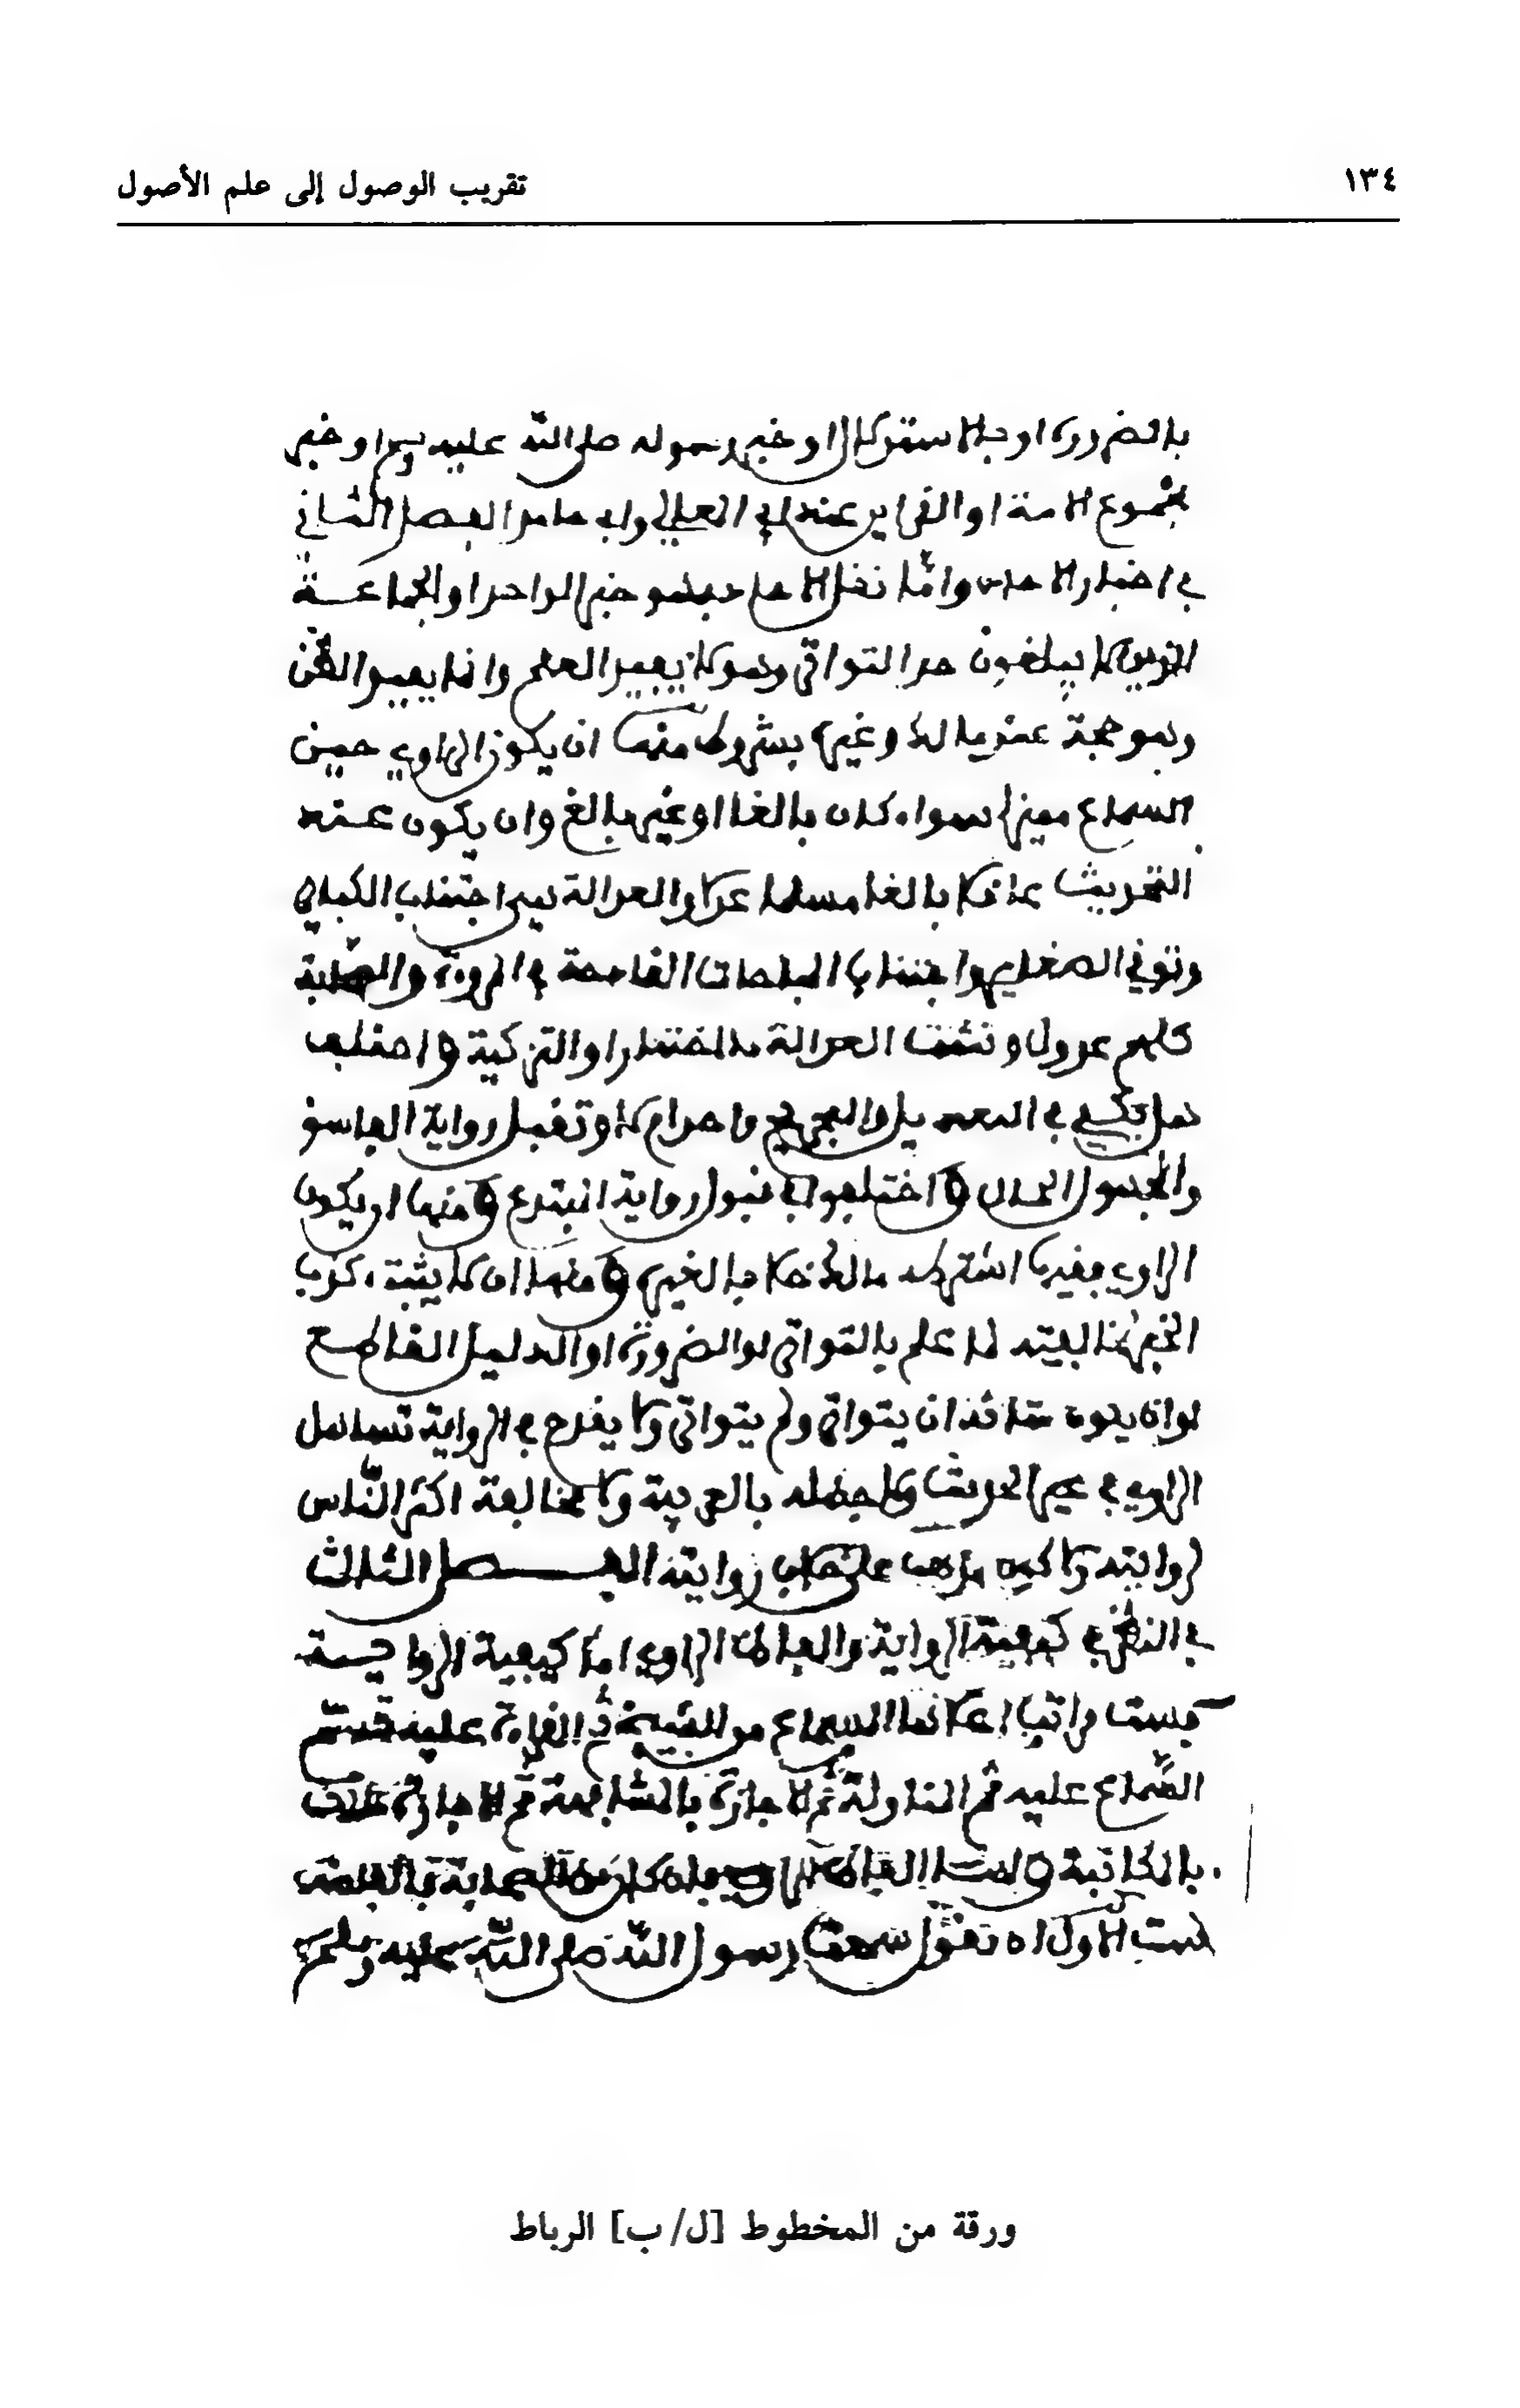 ١٣٤
تقريب الوصول إلى علم الأصول
بالضرورة او بالاستدلال او خبر رسوله صلى الله عليه وسلم او خبر
مجموع الامة او القراين عند ابي المعالي وابي حامد الفصل الثاني
في اخبار الاحاد واما نقل الاحاد فهو خبر الواحد او الجماعة
الذين لا يبلغون حد التواتر وهو لا يفيد العلم وانما يفيد الظن
وهو حجة عند مالك وغيره بشروط منها ان يكون الراوي حين
السماع مميزا سواء كان بالغا او غير بالغ وان يكون عند
التحديث عاقلا بالغا مسلما عدلا والعدالة هي اجتناب الكباير
وتوقي الصغاير واجتناب المباحات القادحة في المروءة والصحابة
كلهم عدول وتثبت العدالة بالاختبار او التزكية واختلف
هل يكفي في التعديل والتجريح واحد ام لا و تقبل رواية الفاسق
والمجهول الحال واختلفوا في قبول رواية المبتدع ومنها ان يكون
الراوي فقيها اشترطه مالك خلافا لغيره ومنها ان لا يثبت كذب
الخبر لمخالفته لما علم بالتواتر او الضرورة او الدليل القاطع
او ان يكون شانه ان يتواتر ولم يتواتر ولا يقدح في الرواية تساهل
الراوي في غير الحديث ولا جهله بالعربية ولا مخالفة اكثر الناس
لروايته ولا كون مذهب على خلاف روايته الفصل الثالث
في النظر في كيفية الرواية والفاظ الراوي اما كيفية الرواية
فست مراتب اعلاها السماع من الشيخ ثم القراءة عليه ثم
السماع عليه ثم المناولة ثم الاجازة بالمشافهة ثم الاجازة
بالمكاتبة واما الفاظ الراوي فان كان صحابيا فالفاظه
ست الاولى ان يقول سمعت رسول الله صلى الله عليه وسلم
ورقة من المخطوط [ل/ب] الرباط